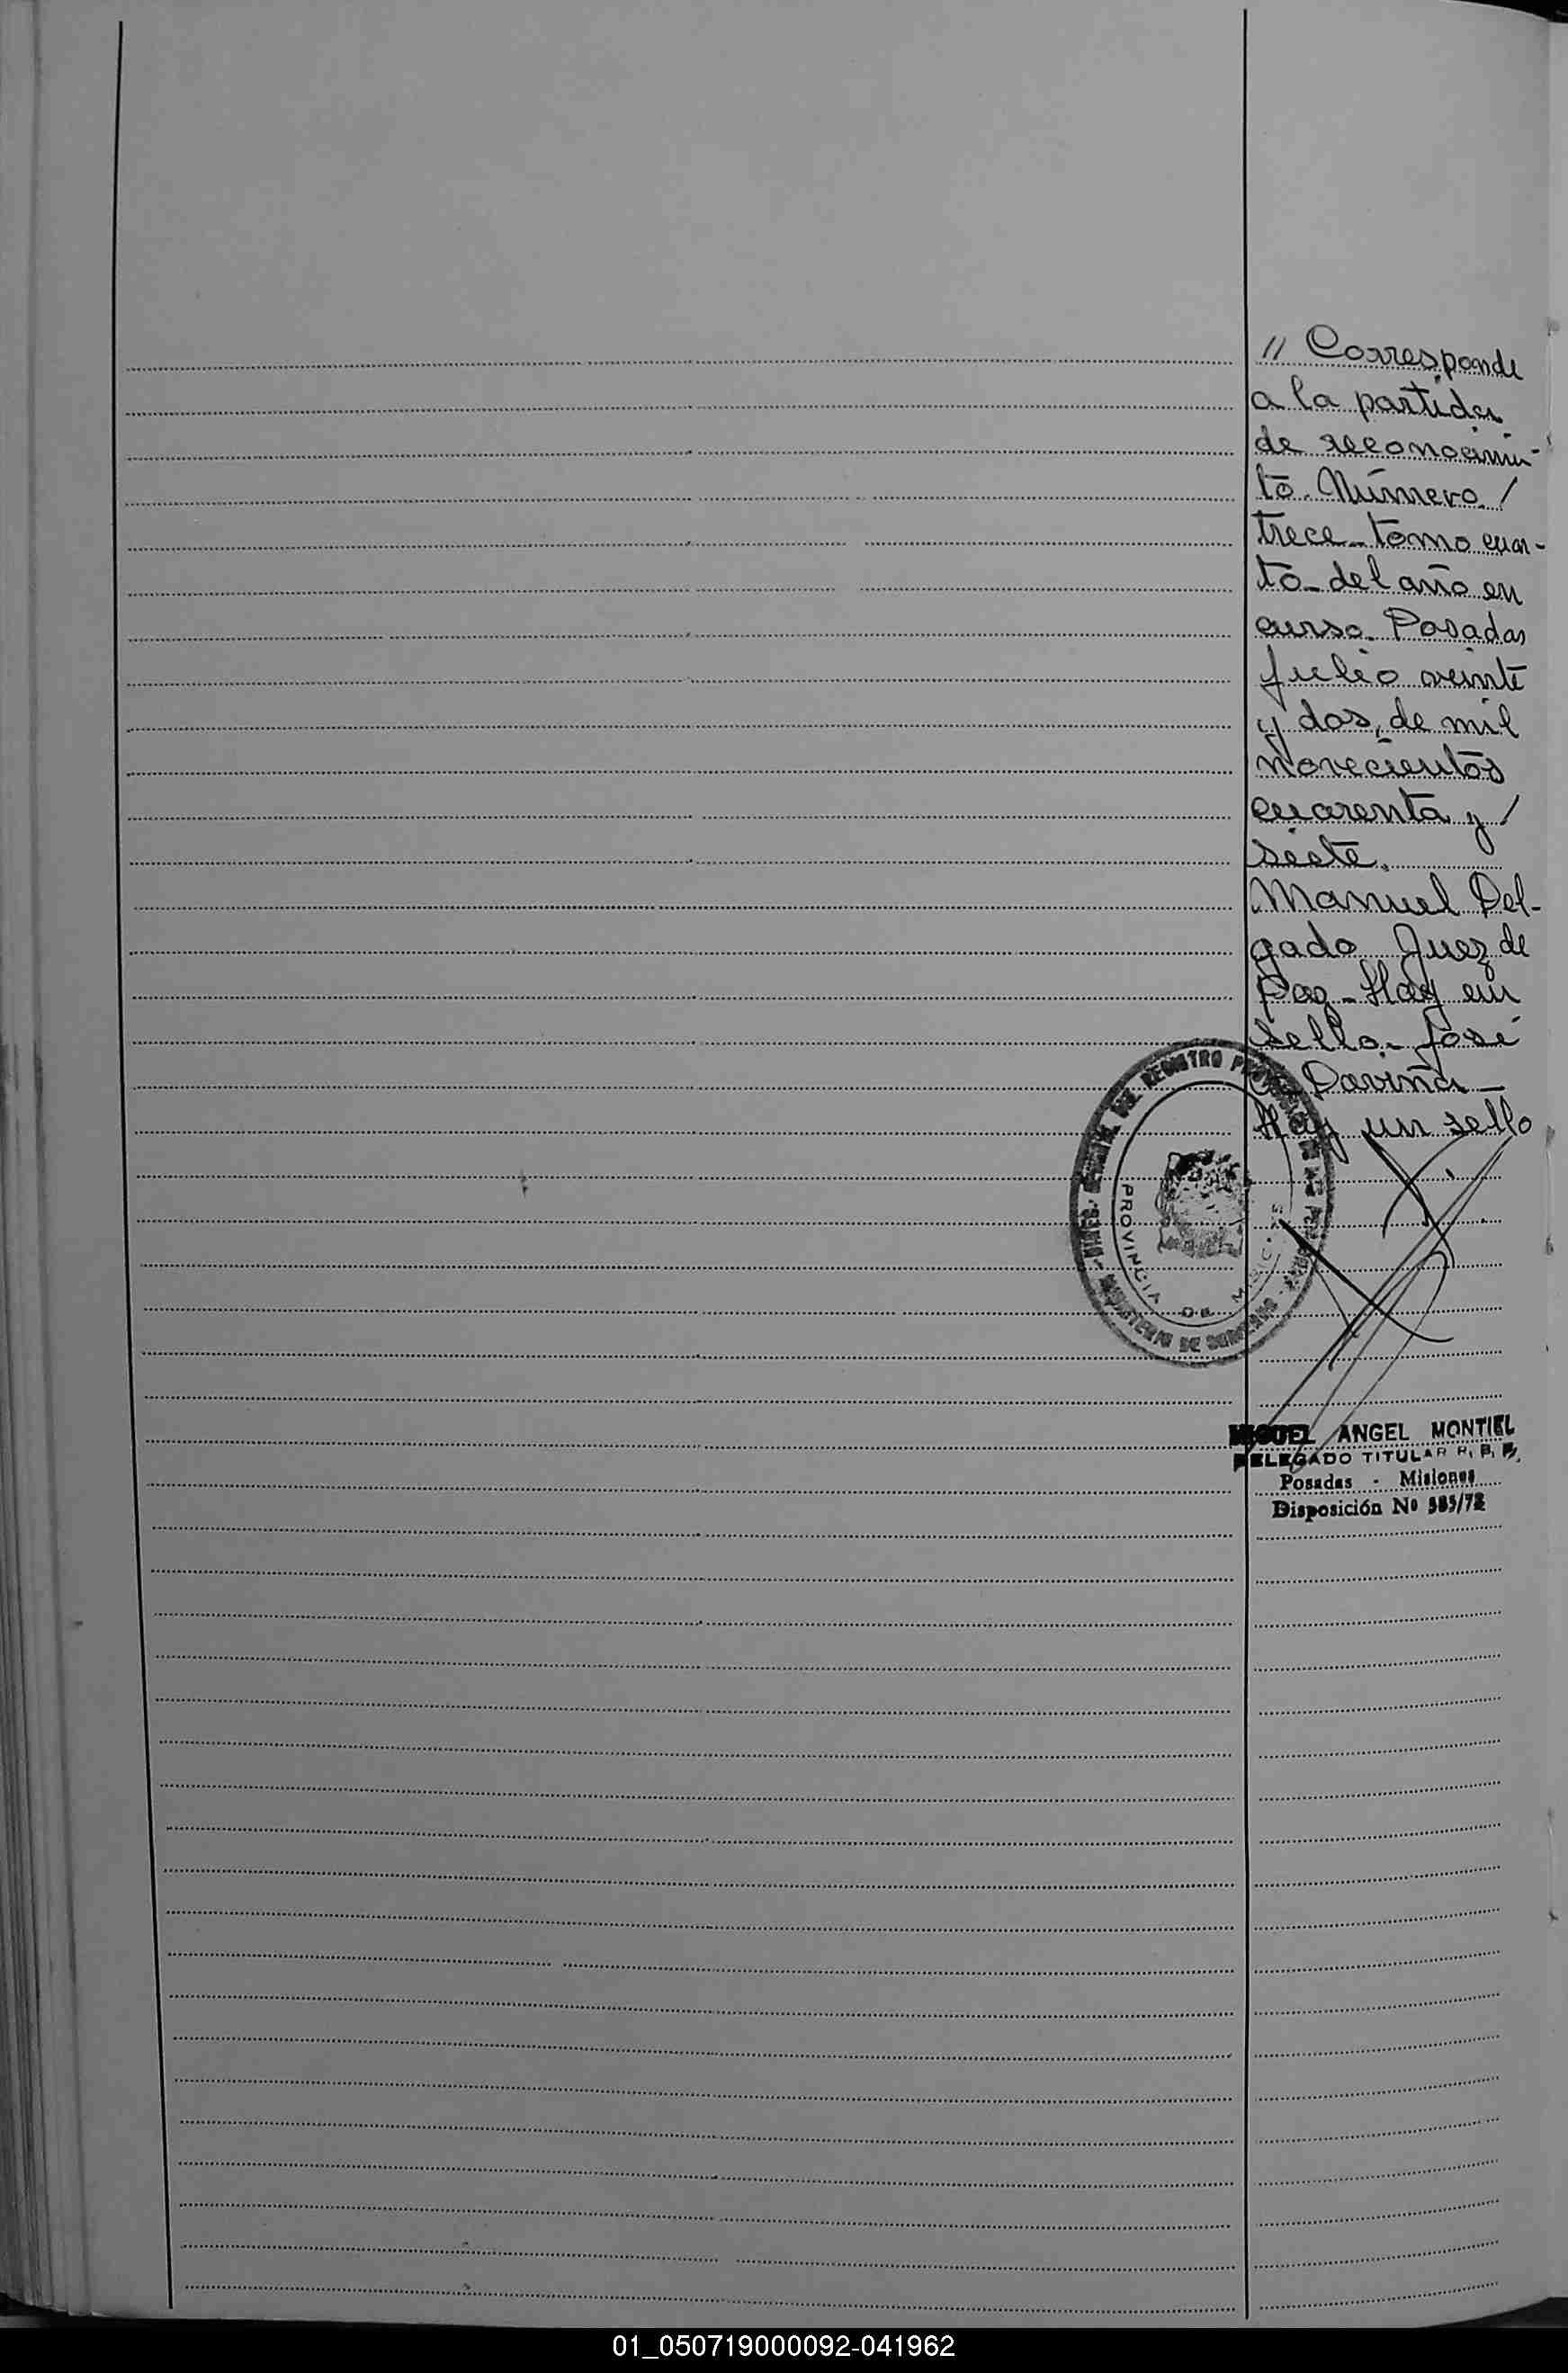 // Corresponde
a la partida
de reconocimien-
to. Número /
trece - tomo cuar-
to - del año en
curso. Posadas
julio veinte
y dos, de mil
novecientos
cuarenta y /
siete.
Manuel Del-
gado Juez de
Paz - Hay un
sello - José
Daviña -
Hay un sello
REGISTRO
PROVINCIA DE
MINISTERIO DE GOBIERNO
MIGUEL ANGEL MONTIEL
DELEGADO TITULAR
Posadas - Misiones
Disposición Nº
01_050719000092-041962